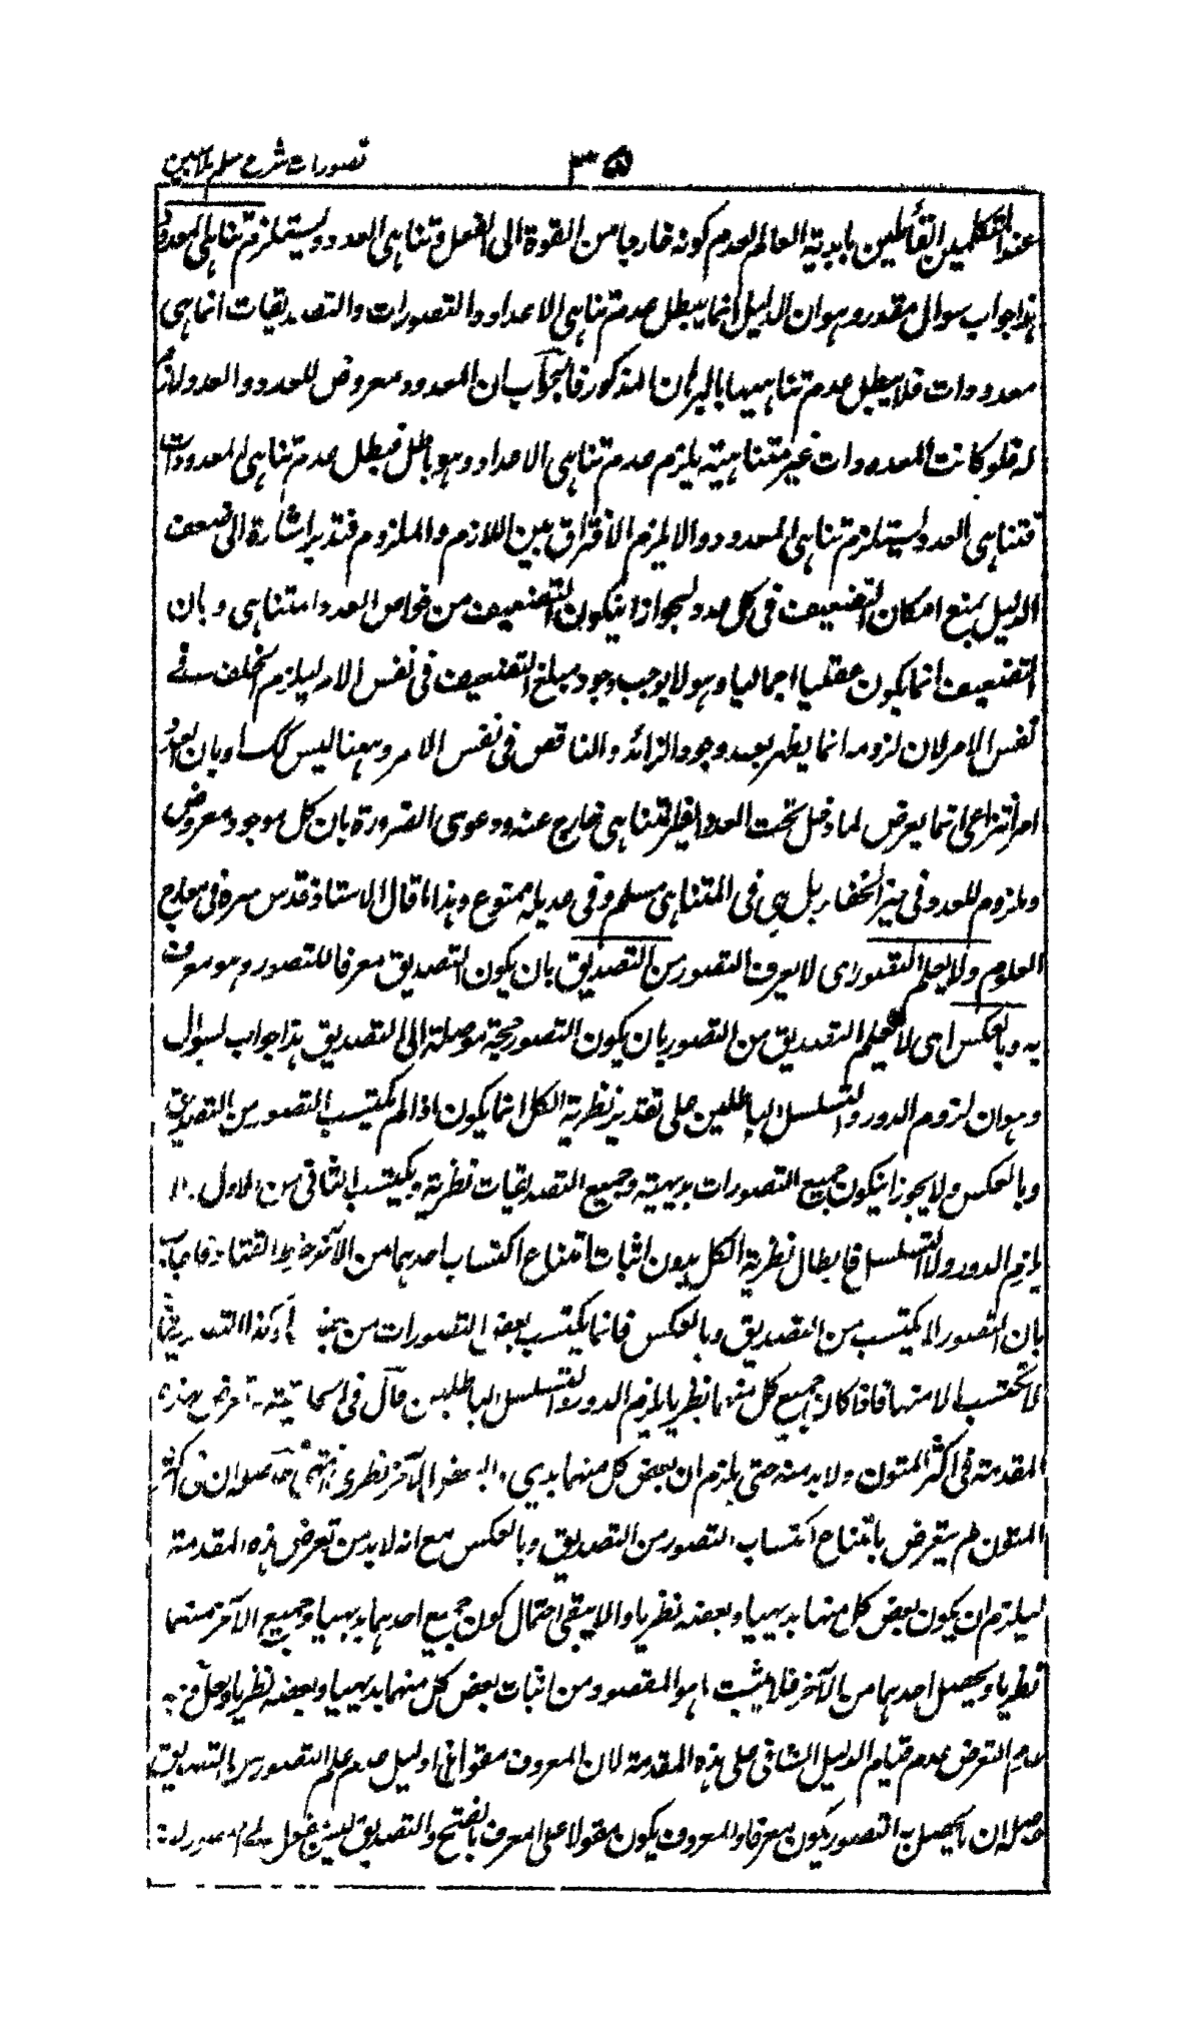 تصورات شرح سلم ملا مبين
٣٥
عند المتكلمين القائلين بابدية العالم لعدم كونه خارجا من القوة الى الفعل وتناهى العدد يستلزم تناهى المعدود
هذا جواب سوال مقدر وهو ان الدليل انما يبطل عدم تناهى الاعداد والتصورات والتصديقات انما هى
معدودات فلا يبطل عدم تناهيها بالبرهان المذكور فالجواب ان المعدود معروض للعدد والعدد لازم
له فلو كانت المعدودات غير متناهية يلزم عدم تناهى الاعداد وهو باطل فبطل عدم تناهى المعدودات
فتناهى العدد يستلزم تناهى المعدود والا لزم الافتراق بين اللازم والملزوم فتدبر اشارة الى ضعف
الدليل بمنع امكان التضعيف فى كل عدد لجواز ان يكون التضعيف من خواص العدد المتناهى وبان
التضعيف انما يكون عقليا اجماليا وهو لا يوجب وجود مبلغ التضعيف فى نفس الامر ليلزم الخلف فے
نفس الامر لان لزومه انما يظهر بعد وجود الزائد والناقص فى نفس الامر وههنا ليس كك او بان العدد
امر انتزاعى انما يعرض لما دخل تحت العدد الغير المتناهى خارج عنه ودعوى الضرورة بان كل موجود معروض
وملزوم للعدد فى حيز الخفاء بل هى فى المتناهى مسلم وفى عديله ممنوع وهذا ما قال الاستاذ قدس سره فى معارج
العلوم ولا يعلم التصور اى لا يعرف التصور من التصديق بان يكون التصديق معرفا للتصور وهو معرف
به وبالعكس اى لا يعلم التصديق من التصور بان يكون التصور حجة موصلة الى التصديق هذا جواب لسوال
وهو ان لزوم الدور والتسلسل الباطلين على تقدير نظرية الكل انما يكون اذا لم يكتسب التصور من التصديق
وبالعكس ولا يجوز ان يكون جميع التصورات بديهية وجميع التصديقات نظرية ويكتسب الثانى من الاول فلا
يلزم الدور ولا التسلسل فابطال نظرية الكل بدون اثبات امتناع اكتساب احدهما من الآخر خرط القتاد فاجاب
بان التصور لا يكتسب من التصديق وبالعكس فانما يكتسب بعض التصورات من بعضها وكذا التصديقات
لا تكتسب الا منها فاذا كان جميع كل منهما نظريا لزم الدور والتسلسل الباطلين قال فى الحاشية لم تعرض بهذه
المقدمة فى اكثر المتون ولا بد منه حتى يلزم ان بعض كل منهما بديهى والبعض الآخر نظرى انتهى حاصله ان فى اكثر
المتون لم يتعرض بامتناع اكتساب التصور من التصديق وبالعكس مع انه لا بد من تعرض هذه المقدمة
ليلزم ان يكون بعض كل منها بديهيا وبعضه نظريا والا يبقى احتمال كون جميع احدهما بديهيا وجميع الآخر منهما
نظريا ويحصل احدهما من الآخر فلا يثبت ما هو المقصود من اثبات بعض كل منهما بديهيا وبعضه نظريا ولعل وجه
عدم التعرض عدم قيام الدليل الشافى على هذه المقدمة لان المعرف مقول اى دليل عدم علم التصور من التصديق
حاصله ان ما يحصل به التصور يكون معرفا والمعرف يكون مقولا على المعرف بالفتح والتصديق ليس